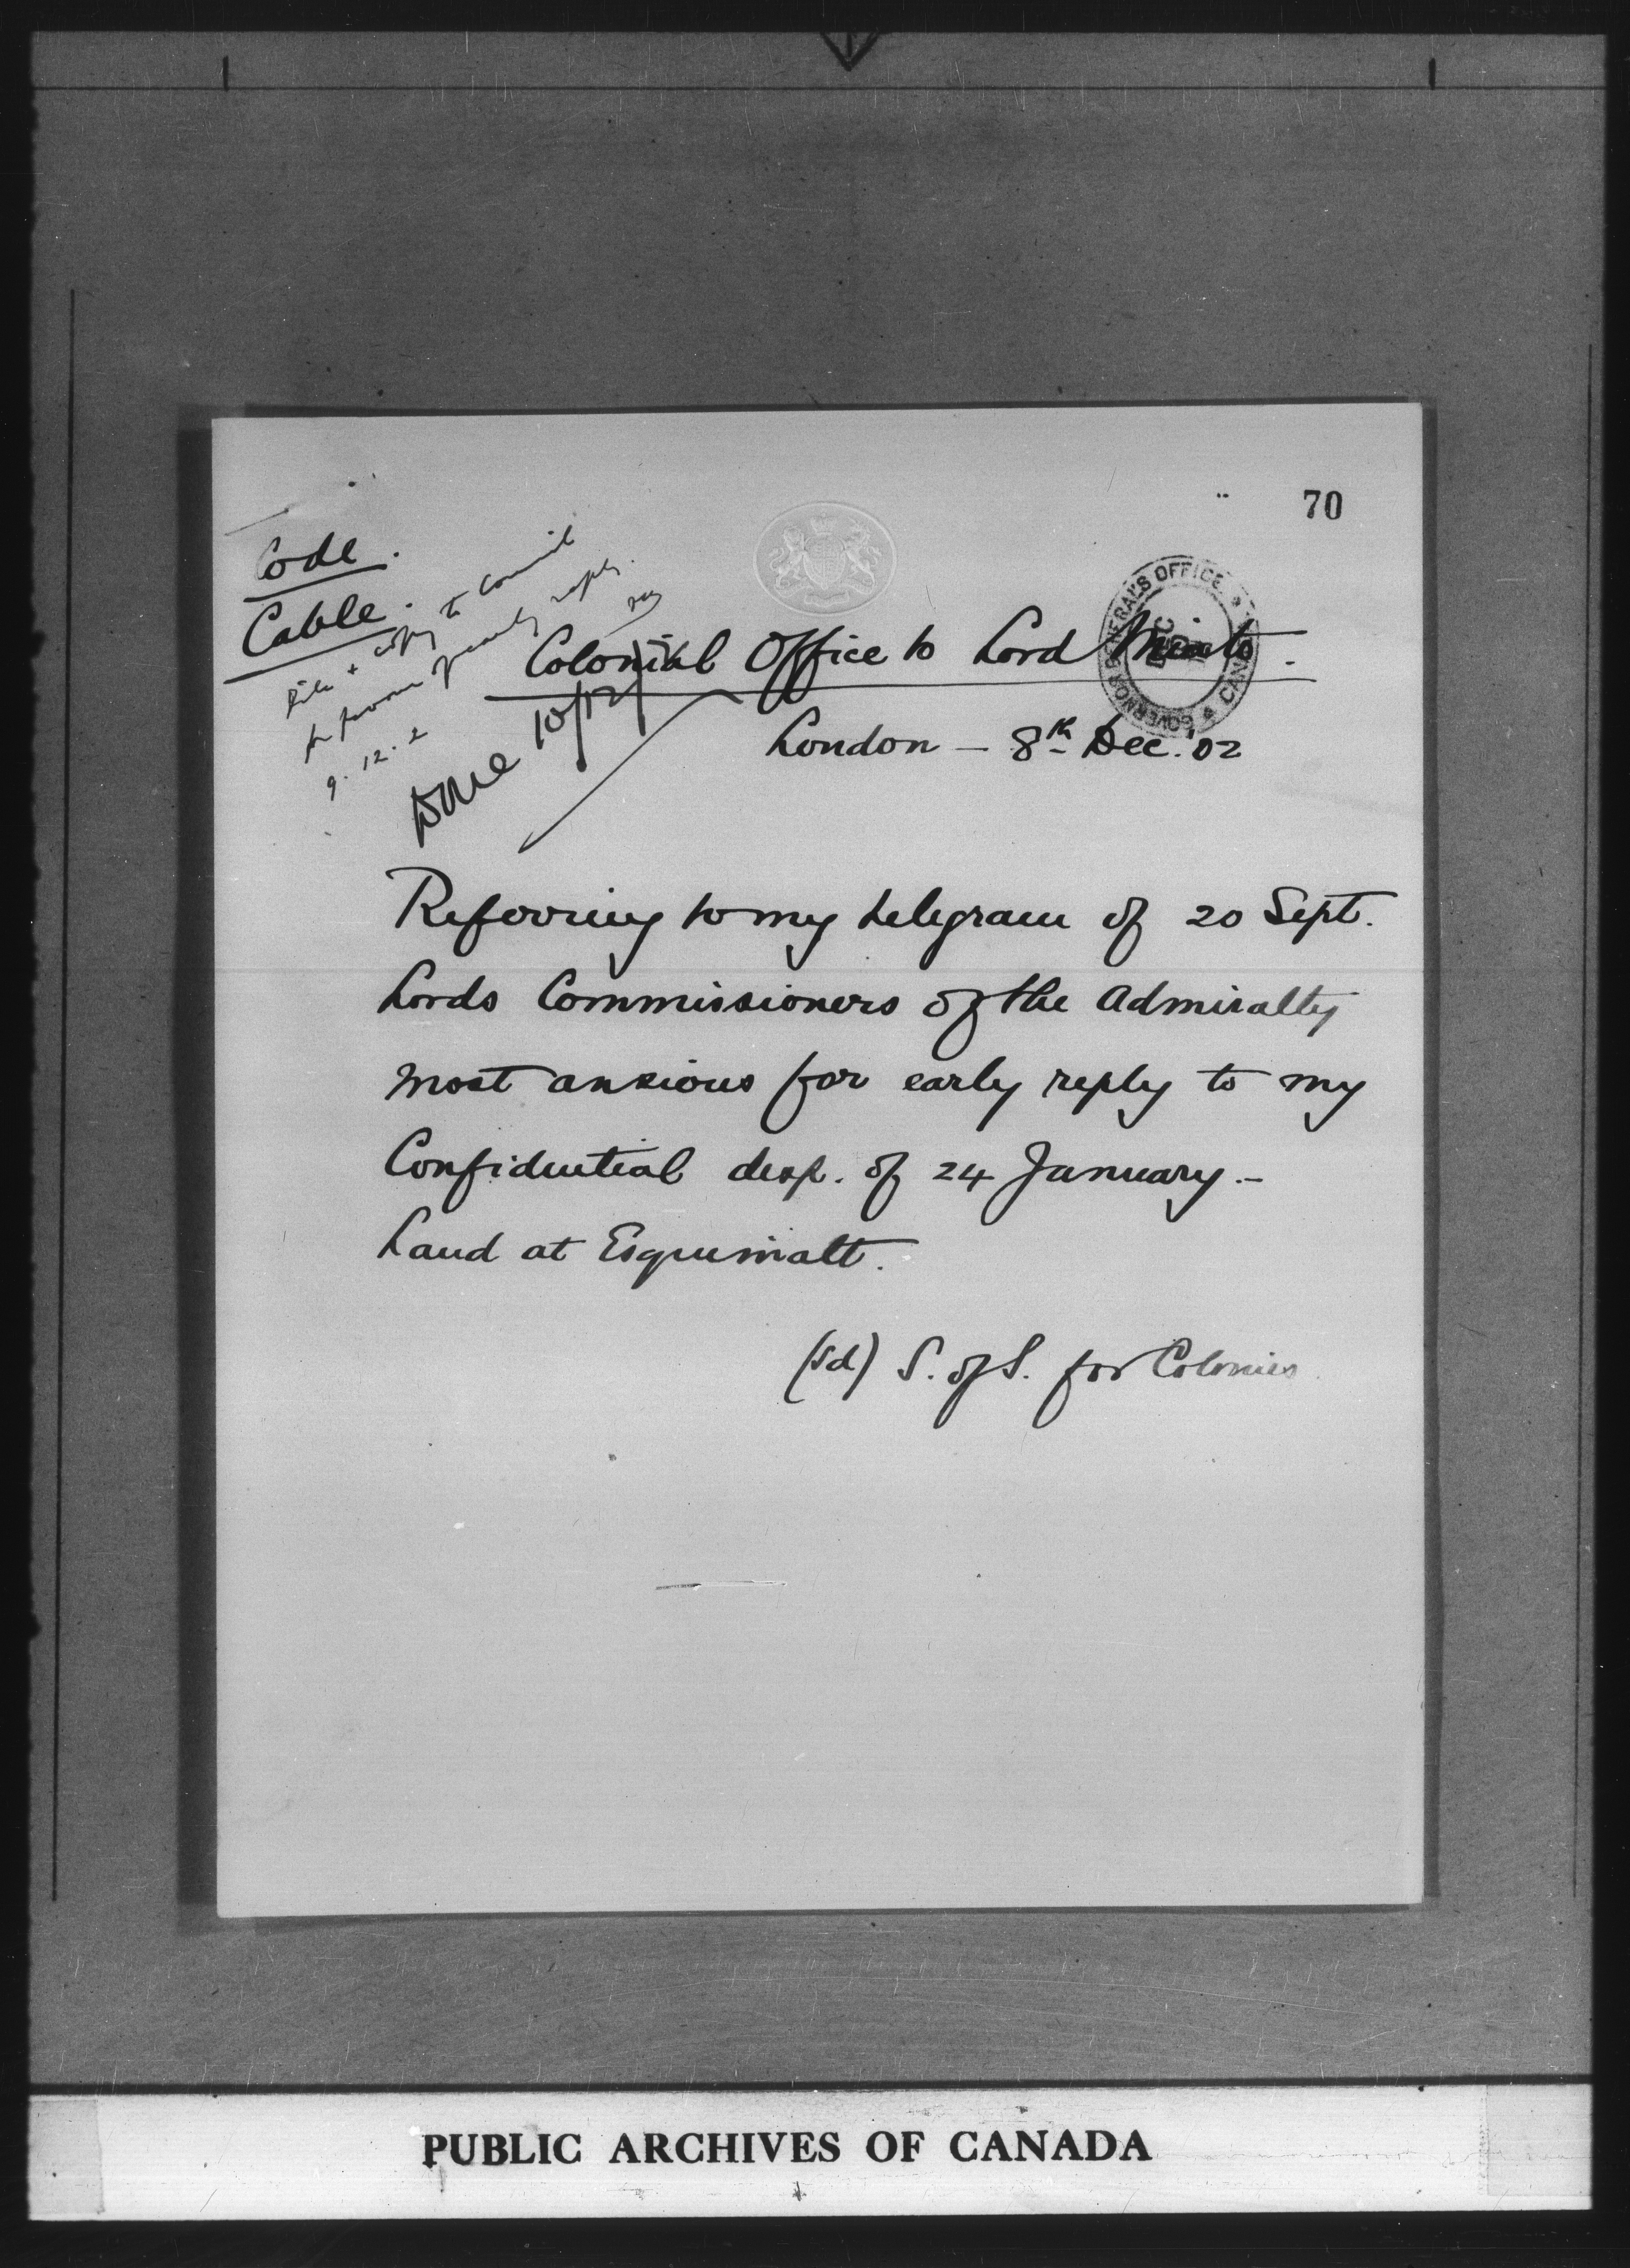 70
Code.
Cable.
File + copy to Council
for favour of early reply.
9.12.2
Done 10/12/
GOVERNOR GENERAL'S OFFICE
DEC
CANADA
Colonial Office to Lord Minto.
London - 8th Dec. '02
Referring to my telegram of 20 Sept.
Lords Commissioners of the Admiralty
most anxious for early reply to my
Confidential desp. of 24 January.-
Land at Esquimalt.
(sd) S. of S. for Colonies
PUBLIC ARCHIVES OF CANADA